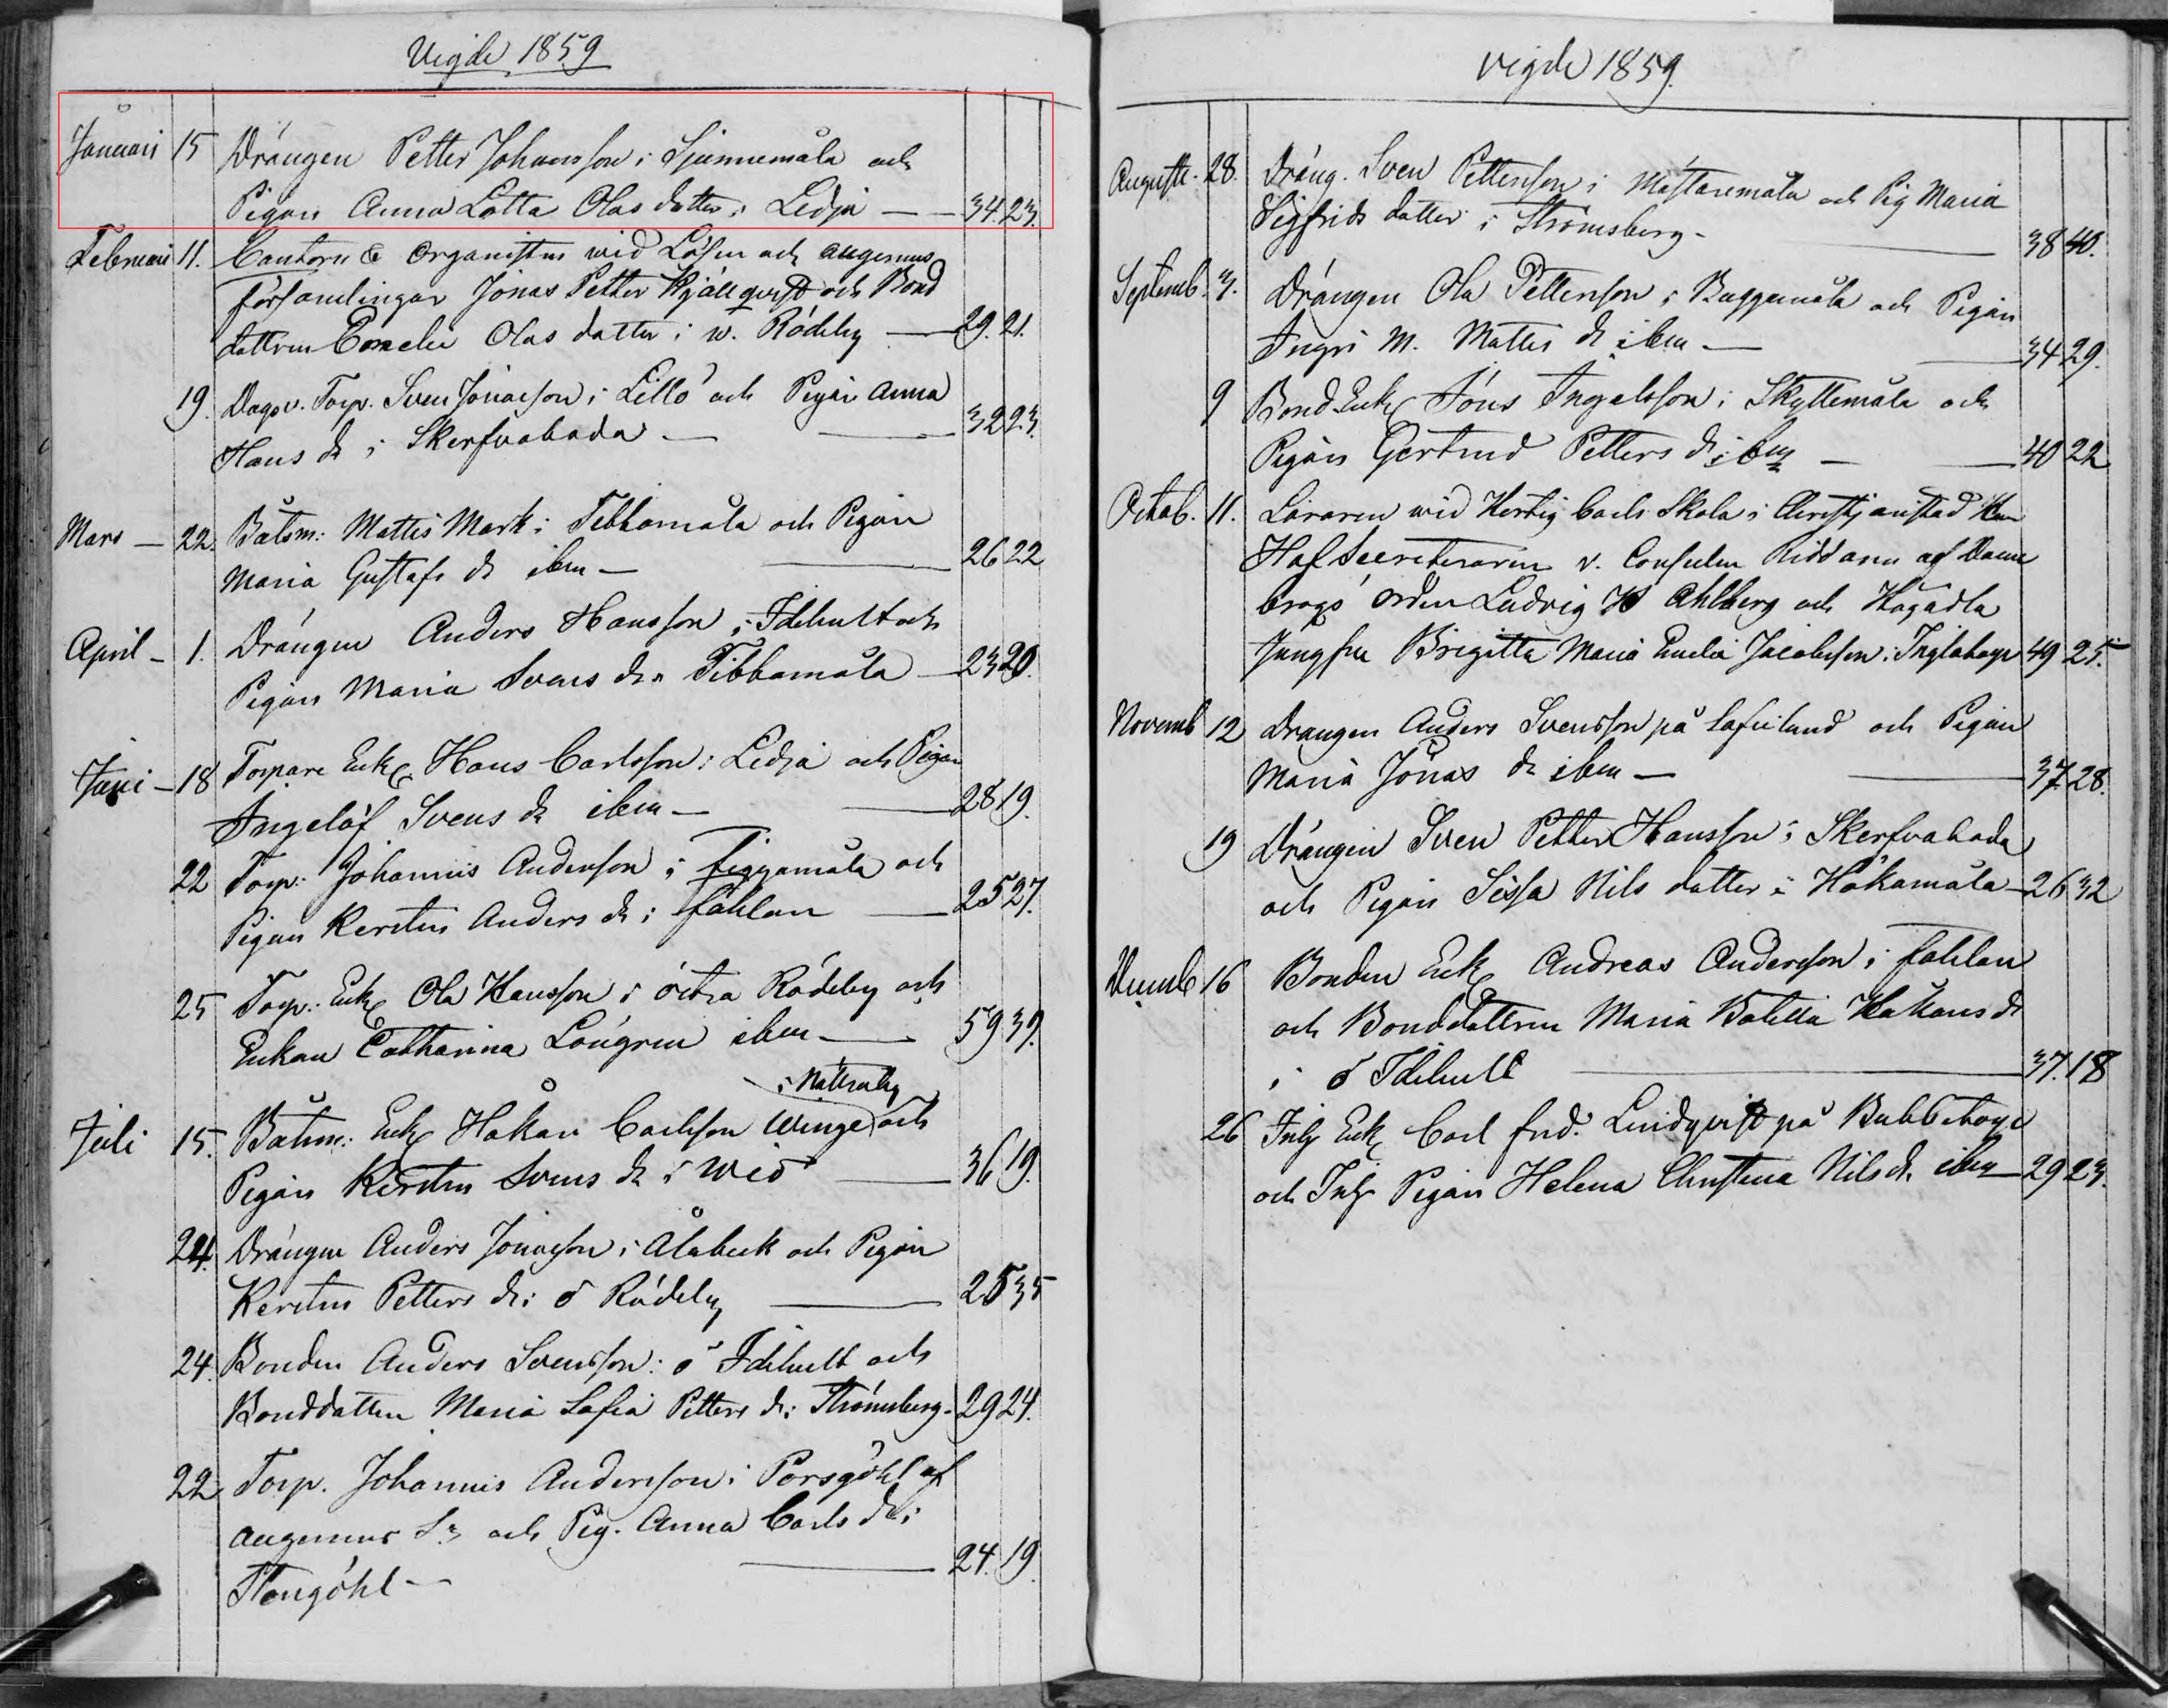 Vigde 1859
Januari 15 Drängen Petter Johansson i Sjunnemåla och
Pigan Anna Lotta Olasdotter i Ledja — 34. 23.
Februari 11. Cantorn & Organisten wid Lösen och Augerums
församlingar Jonas Petter Kjällqvist och Bond
dottren Emelie Olas dotter i w. Rödeby — 29. 21.
19. Dagsv. Torp. Sven Jonasson i Lillö och Pigan Anna
Hans dr i Skerfvaboda — 32 23.
Mars — 22. Båtsm: Mattis Mark i Tibbamåla och Pigan
Maria Gustafs dr ibm — 26 22
April — 1. Drängen Anders Hansson i Idehult och
Pigan Maria Svens dr i Tibbamåla — 23 20.
Juni — 18 Torpare Enkl Hans Carlsson i Ledja och Pigan
Ingelöf Svens dr ibm — 28 19.
22 Torp: Johannis Anderson i Figgamåla och
Pigan Kerstin Anders dr i fählan — 25 27.
25 Torp: Enkl Ola Hansson i östra Rödeby och
Enkan Catharina Löngren ibm — 59 39.
i Nättraby
Juli 15. Båtsm: Enkl Håkan Carlsson Winge och
Pigan Kerstin Svens dr i Wiö — 36 19.
24. Drängen Anders Jonasson i Ålabeck och Pigan
Kerstin Petters dr i ö Rödeby — 25 35
24. Bonden Anders Svensson i ö Idehult och
Bonddottren Maria Sofia Petters dr i Strömsberg — 29 24.
22 Torp. Johannis Anderson i Porsgöhl af
Augerums Sn och Pig. Anna Carls dr i
Stongöhl — 24. 19.
Vigde 1859.
Augusti. 28. Dräng. Sven Pettersson i Mästaremåla och Pig Maria
Sigfrids dotter i Strömsberg — 38 40.
Septemb. 4. Drängen Ola Petterson i Baggamåla och Pigan
Ingri M. Mattis dr ibm — 34 29.
9 Bond. Enkl Jöns Ingelsson i Skyttemåla och
Pigan Gertrud Petters dr ibm — 40 22
Octob. 11. Läraren wid Hertig Carls Skola i Christjanstad Herr
Hof Secreteraren v. Consulen Riddaren af Danne
brogs Orden Ludvig H Ahlberg och Högädla
Jungfru Brigitta Maria Emelia Jacobsson i Inglatorp 49 25.
Novemb 12 Drangen Anders Svensson på Sofielund och Pigan
Maria Jönas dr ibm — 37 28.
19 Drängen Sven Petter Hansson i Skerfvaboda
och Pigan Sissa Nils dotter i Håkamåla — 26 32
Decemb 16 Bonden Enkl Andreas Anderson i fahlan
och Bonddottren Maria Botilla Håkans dr
i ö Idehult — 37. 18
26 Inh Enkl Carl Fred. Lindqvist på Bubbetorp
och Inh Pigan Helena Christina Nils dr ibm — 29 23.